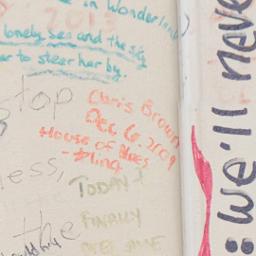 in Wonderland
2013
lonely sea and the sky
to steer her by.
top
Chris Brown
Dec 6 2009
House of Blues
less,
TODAY
FINALLY
the
we'll never